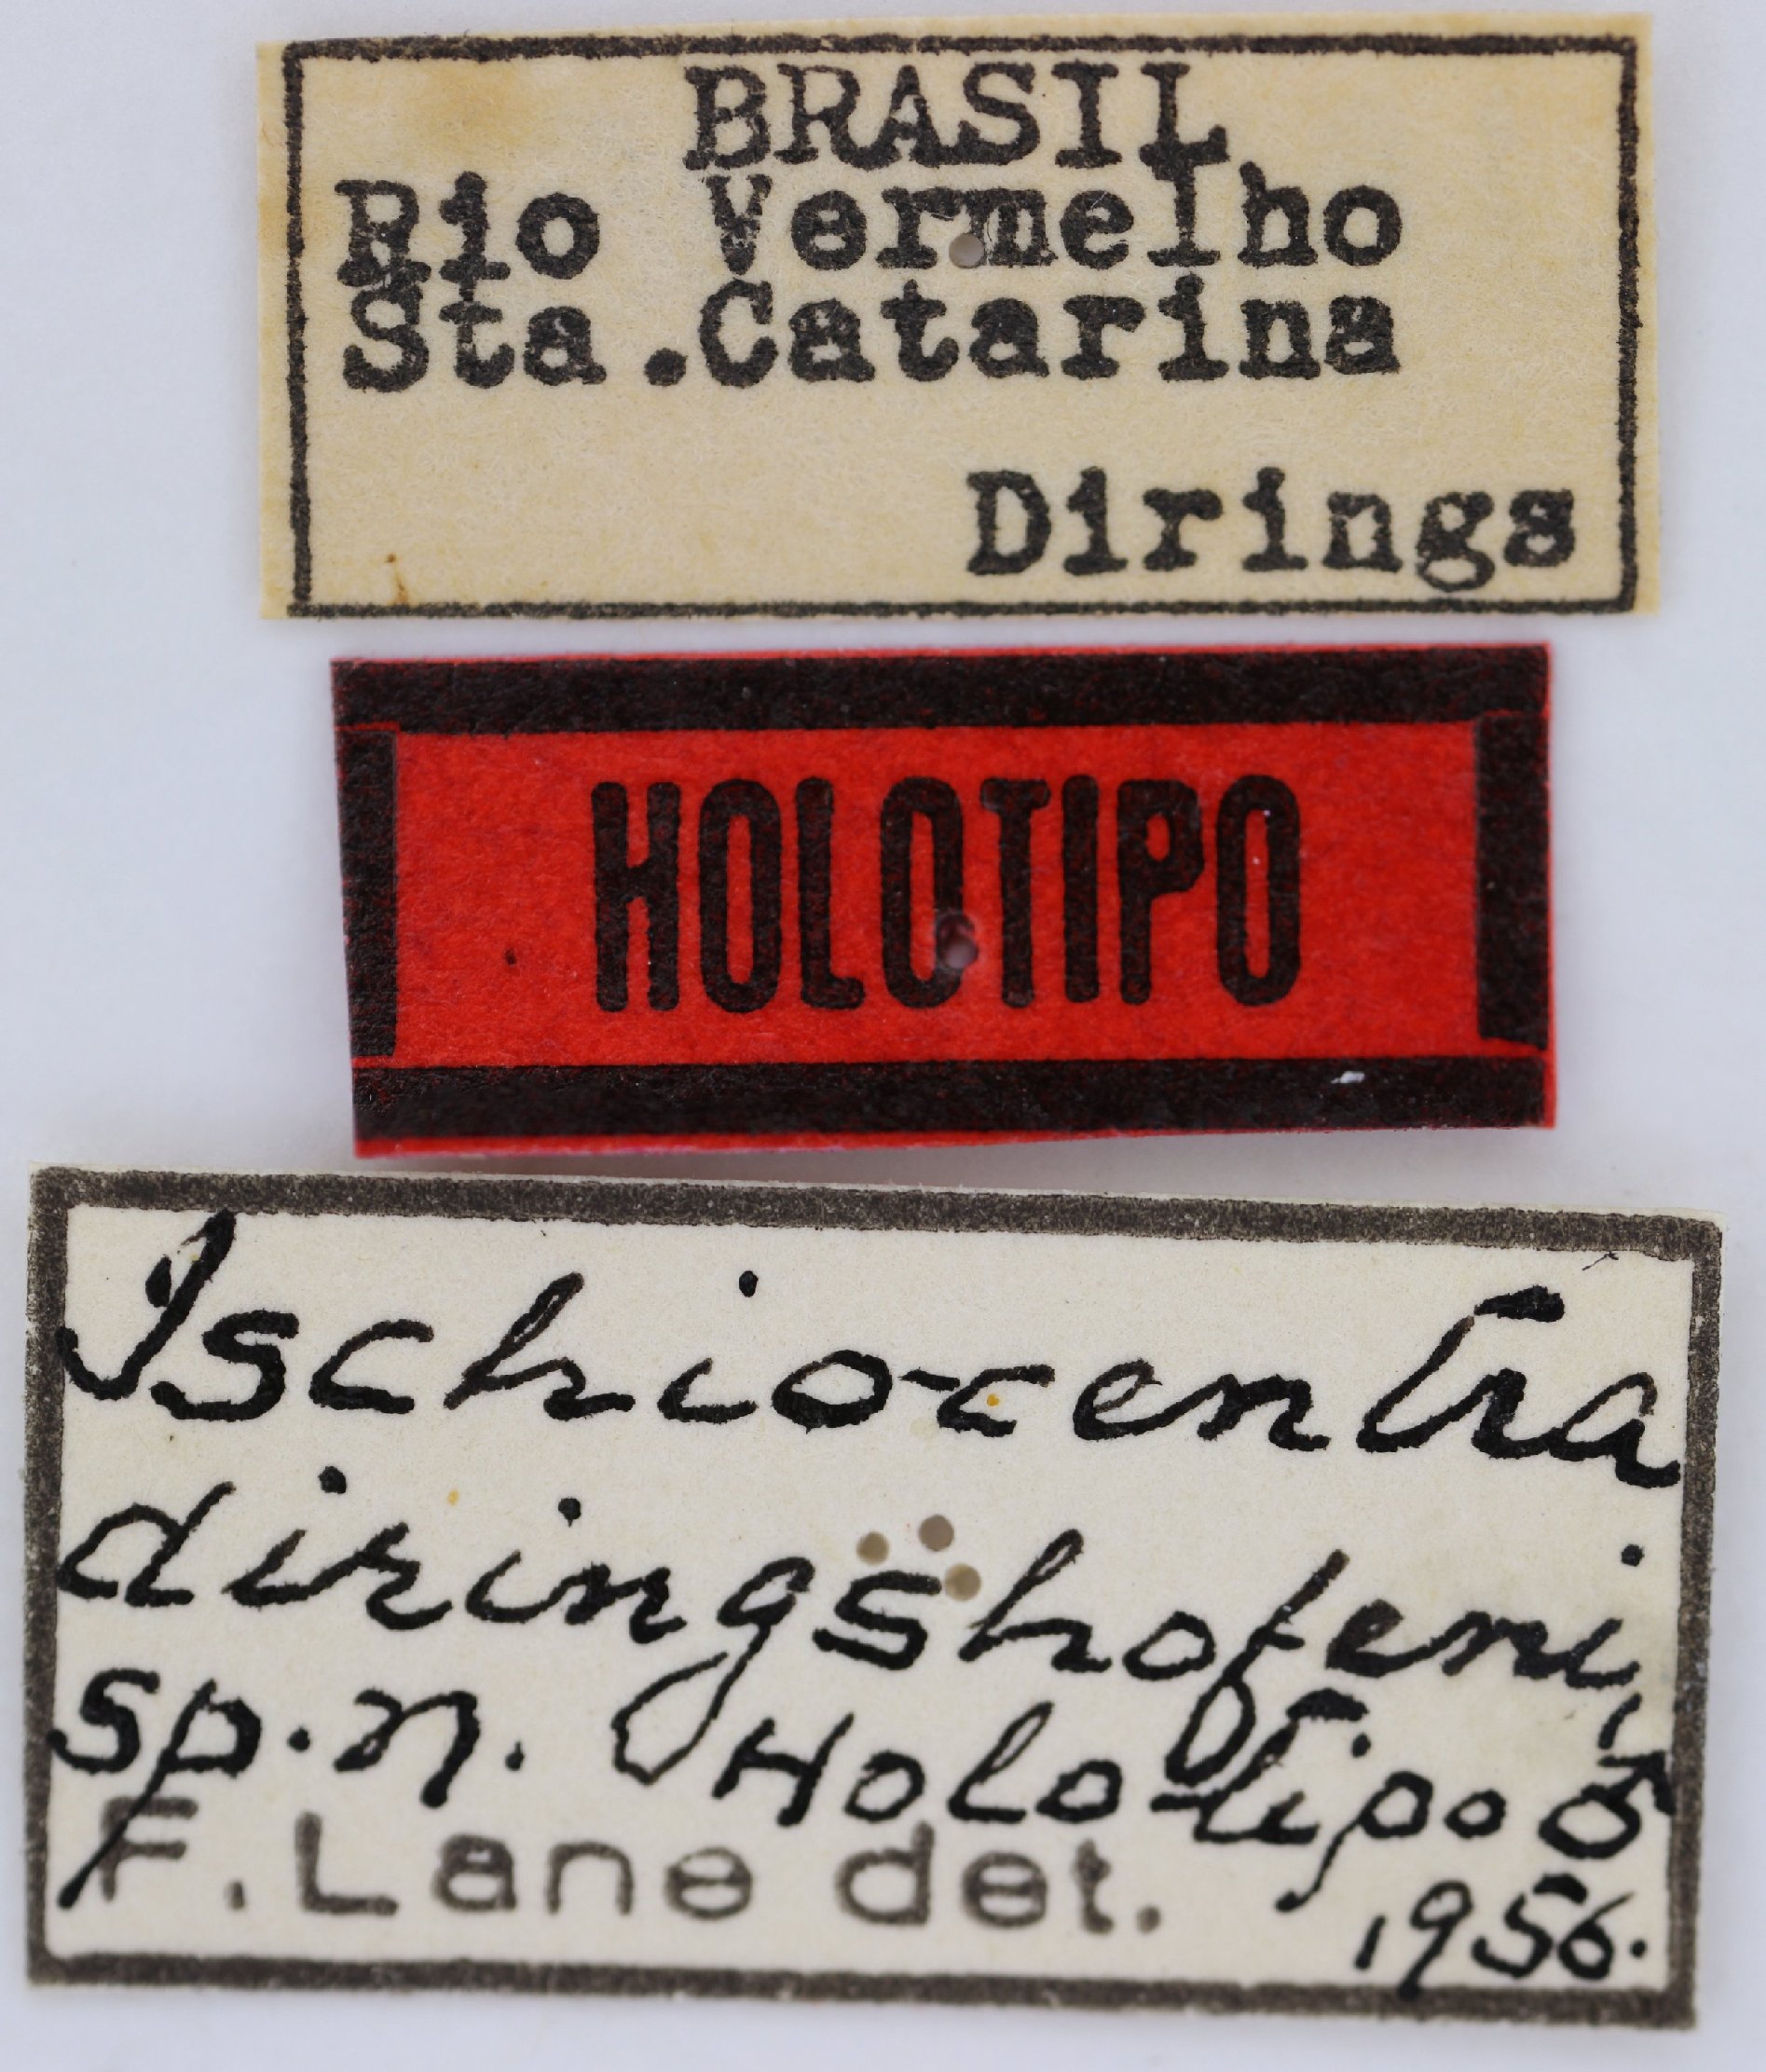 BRASIL
Rio Vermelho
Sta.Catarina
Dirings
HOLOTIPO
Ischiocentra
diringshofeni,
sp. n. Holotipo ♂
F. Lane det. 1956.